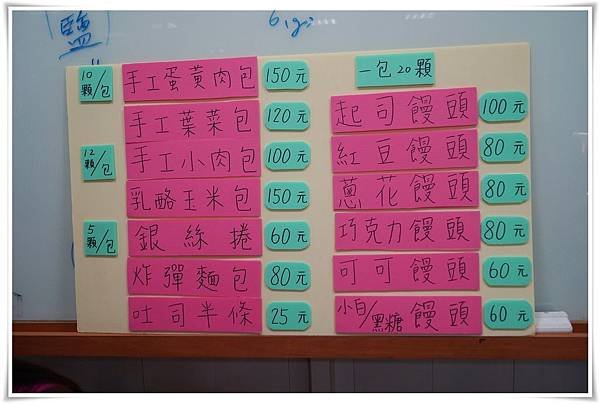 鹽
10顆/包
手工蛋黃肉包 150元
手工葉菜包 120元
12顆/包
手工小肉包 100元
乳酪玉米包 150元
5顆/包
銀絲捲 60元
炸彈麵包 80元
吐司半條 25元
一包20顆
起司饅頭 100元
紅豆饅頭 80元
蔥花饅頭 80元
巧克力饅頭 80元
可可饅頭 60元
小白/黑糖饅頭 60元